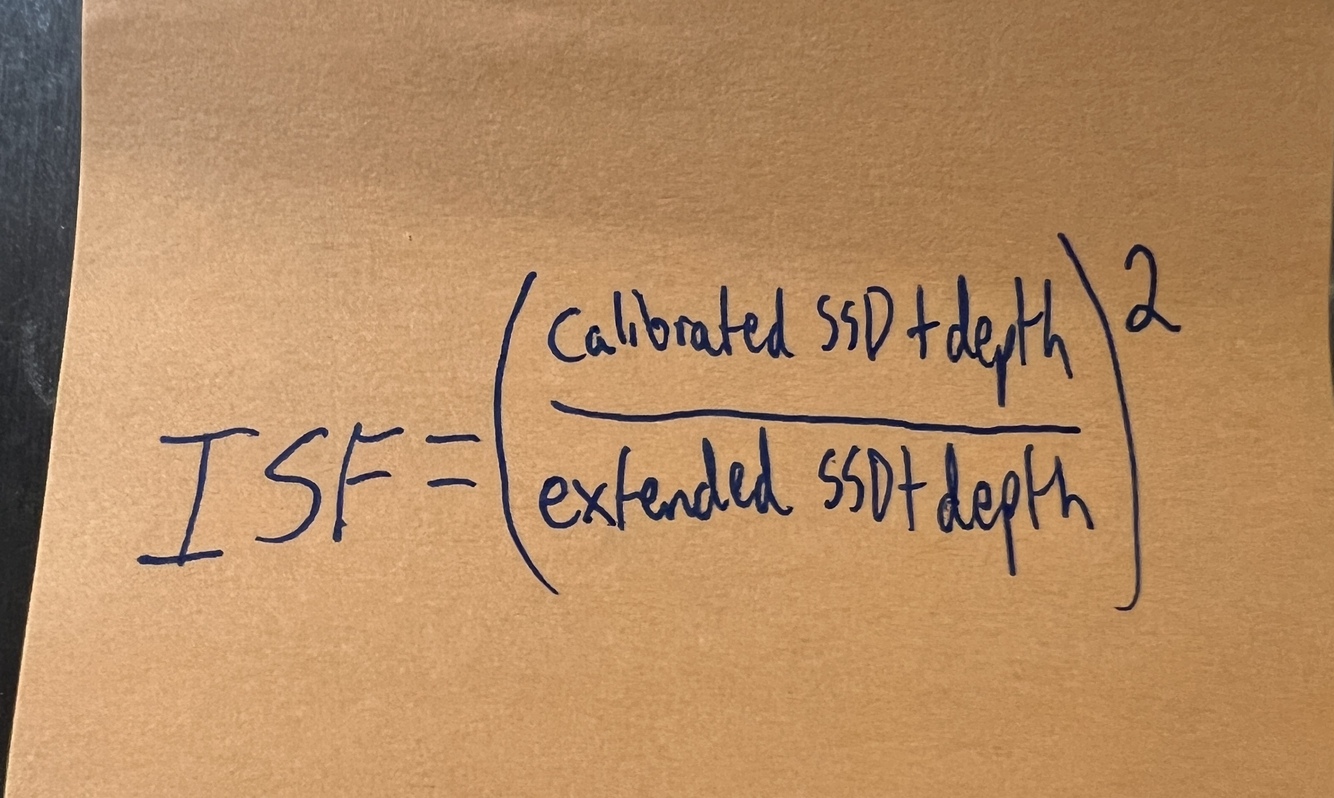 ISF = (calibrated SSD + depth / extended SSD + depth)²